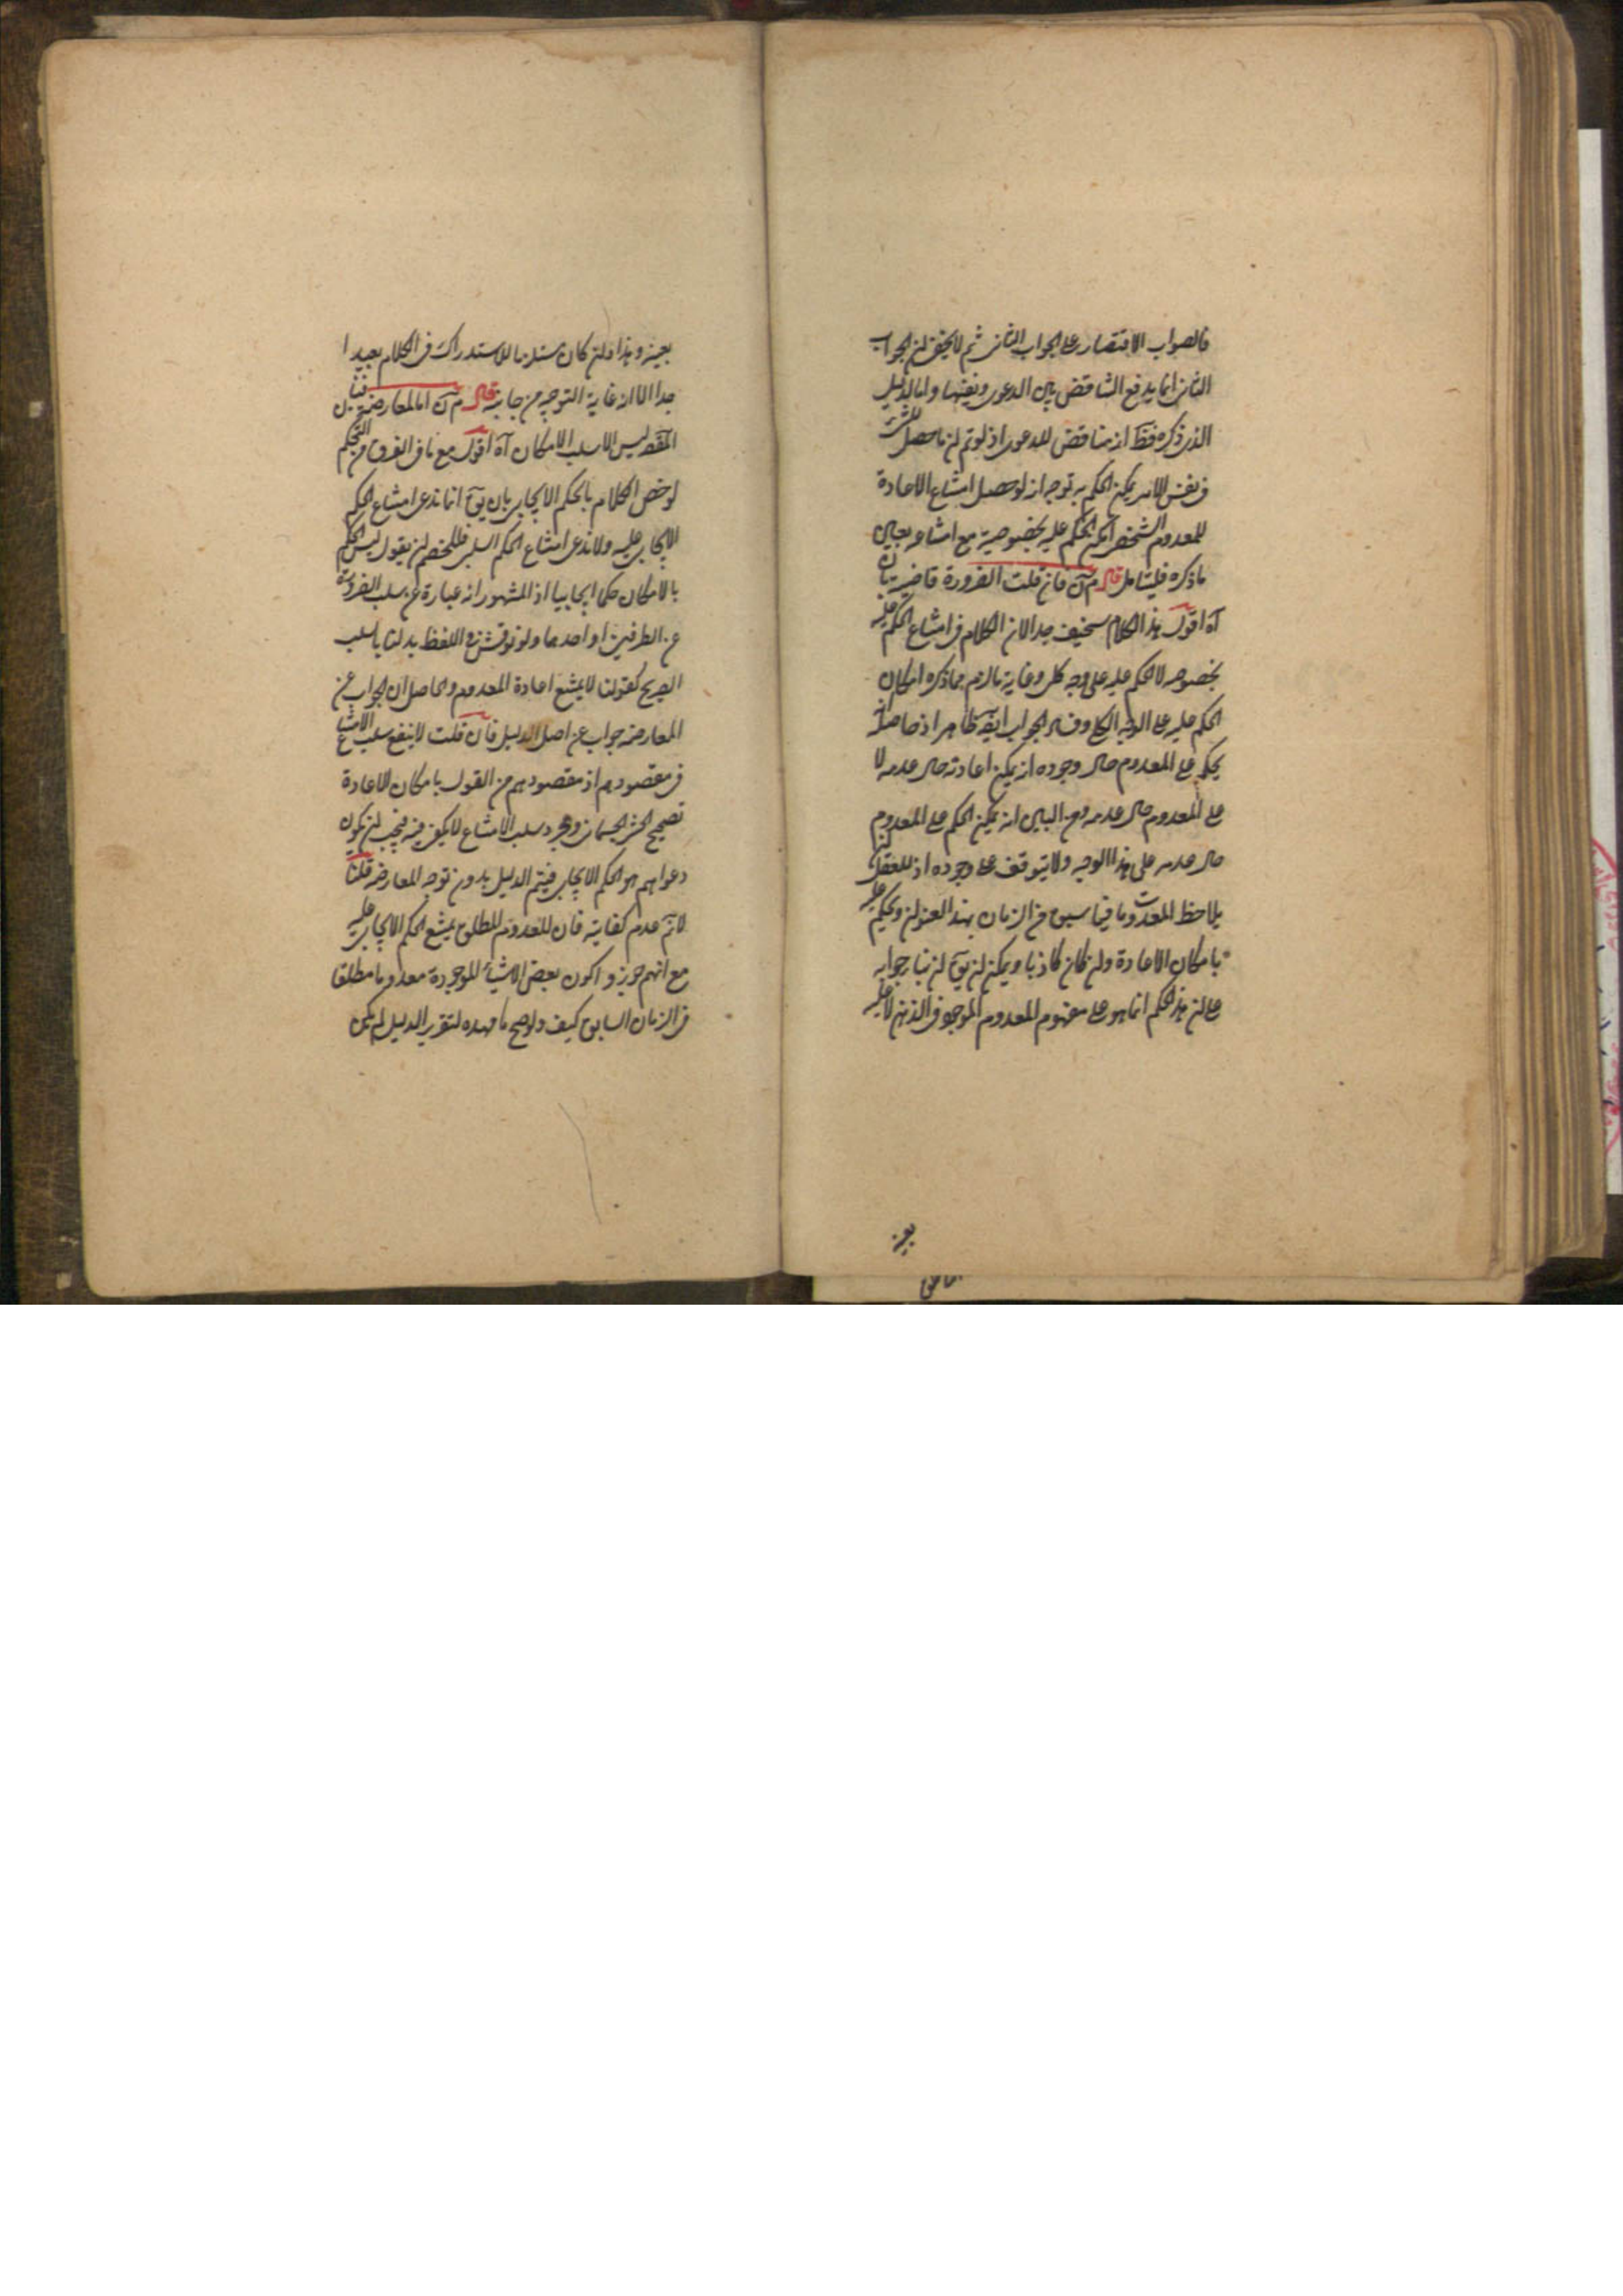 فالصواب الاقتصار على الجواب الثانى ثم لا يخفى ان الجواب
الثانى انما يدفع التناقض بين الدعوى ونفيها واما الدليل
الذى ذكره فظ انه يناقض للدعوى اذ لو تم ان ما حصل
فى نفس الامر يمكن الحكم به توجه انه لو حصل امتناع الاعادة
للمعدوم الشخصى امكن الحكم عليه بخصوصية مع امتناعه بعين
ما ذكره فليتامل قال فان قلت الضرورة قاضية بان
آه اقول هذا الكلام سخيف جدا لان الكلام فى امتناع الحكم عليه
بخصوصه لا الحكم عليه على وجه كلى وغاية ما لزم مما ذكره امكان
الحكم عليه على الوجه الكلى وفساد الجواب ايضا ظاهر اذ حاصله
يحكم على المعدوم حال وجوده انه يمكن اعادته حال عدمه لا
على المعدوم حال عدمه ومن البين انه يمكن الحكم على المعدوم
حال عدمه على هذا الوجه ولا يتوقف على وجوده اذ للعقل ان
يلاحظ المعدومات فيما سبق من الزمان بهذا العنوان ويحكم عليه
بامكان الاعادة وان كان كاذبا ويمكن ان يق ان بناء جوابه
على ان هذا الحكم انما هو على مفهوم المعدوم الموجود فى الذهن لا عليه
بعينه
بعينه وهذا وان كان مستلزما للاستدراك فى الكلام بعيدا
جدا الا انه غاية التوجيه من جانبه قال اما المعارضة فبان
المقص ليس الا سلب الامكان آه اقول مع ما فى الفرق من التحكم
لو خص الكلام بالحكم الايجابى بان يق انما ندعى امتناع الحكم
الايجابى عليه ولا ندعى امتناع الحكم السلبى فللخصم ان يقول ليس الحكم
بالامكان حكما ايجابيا اذ المشهور انه عبارة عن سلب الضرورة
عن الطرفين او احدهما ولو نوقش فى اللفظ بدلنا بالسلب
الصريح كقولنا لا يمتنع اعادة المعدوم والحاصل ان الجواب عن
المعارضة جواب عن اصل الدليل فان قلت لا ينفع سلب الامتناع
فى مقصودهم اذ مقصودهم من القول بامكان الاعادة
تصحيح الحشر الجسمانى ومجرد سلب الامتناع لا يكفى فيه فيجب ان يكون
دعواهم هو الحكم الايجابى فيتم الدليل بدون توجه المعارضة قلنا
لانم عدم كفايته فان المعدوم المطلق يمتنع الحكم الايجابى عليه
مع انهم جوزوا كون بعض الاشياء الموجودة معدوما مطلقا
فى الزمان السابق كيف ولو صح ما مهده لتقرير الدليل لم يكن